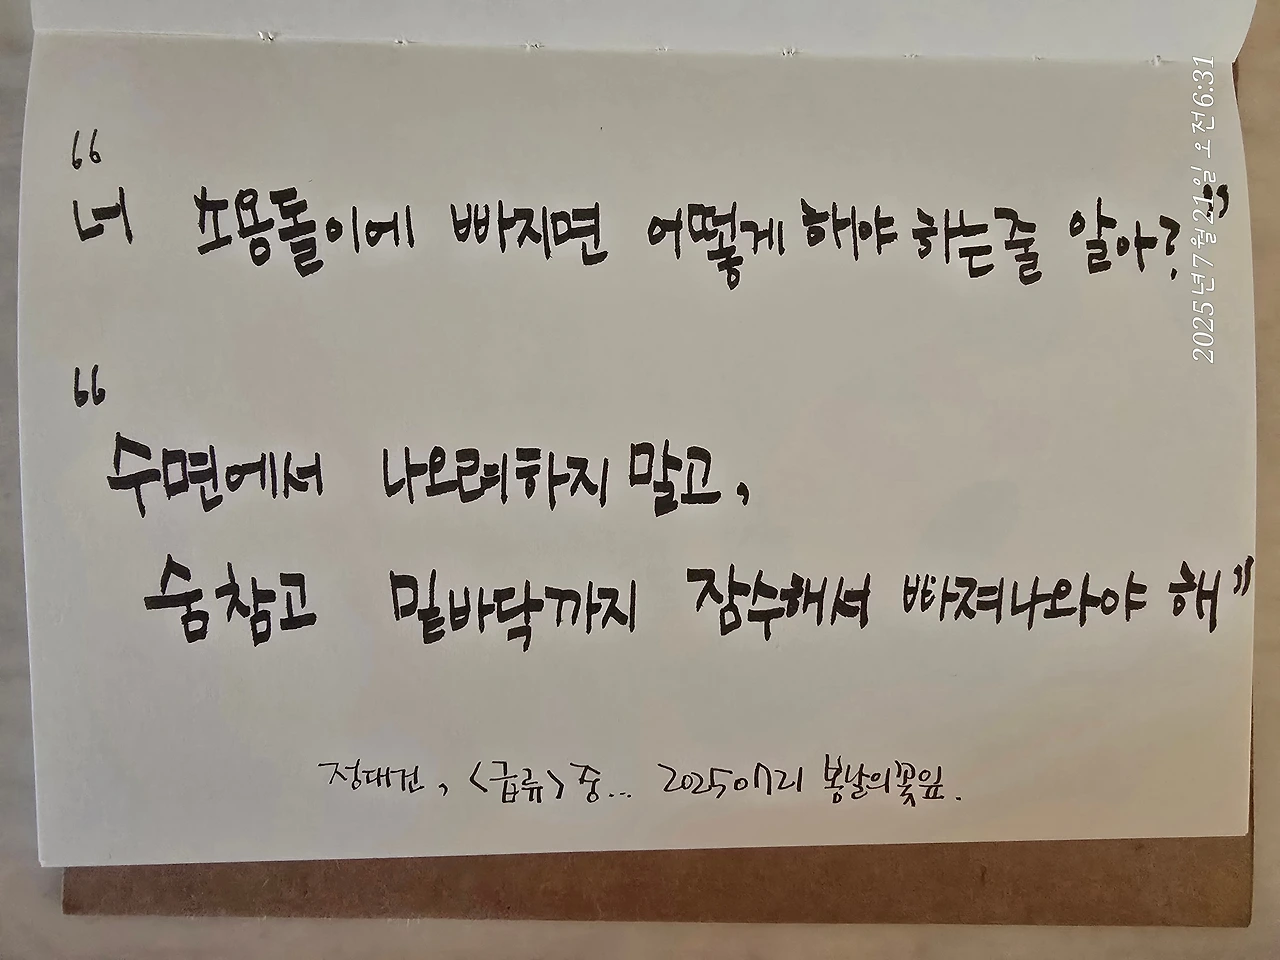 “
너 소용돌이에 빠지면 어떻게 해야 하는줄 알아?”
“
수면에서 나오려하지 말고,
숨참고 밑바닥까지 잠수해서 빠져나와야 해”
정대건, <급류> 중... 20250721 봄날의꽃잎.
2025년 7월 21일 오전 6:31